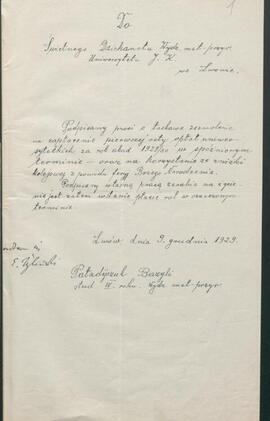 1
Do
Świetnego Dziekanatu Wydz. mat-przyr.
Uniwersytetu J. K.
we Lwowie.
Podpisany prosi o łaskawe zezwolenie
na zapłacenie pierwszej raty opłat uniwer-
syteckich za rok akad. 1929/30 w spóźnionym
terminie – oraz na korzystanie ze zniżki
kolejowej z powodu feryj Bożego Narodzenia.
Podpisany własną pracą zarabia na życie
nie jest zatem w stanie płacić rat w oznaczonym
terminie.
Lwów, dnia 9. grudnia 1929.
Bazyli
stud. IV. roku. Wydz. mat-przyr.